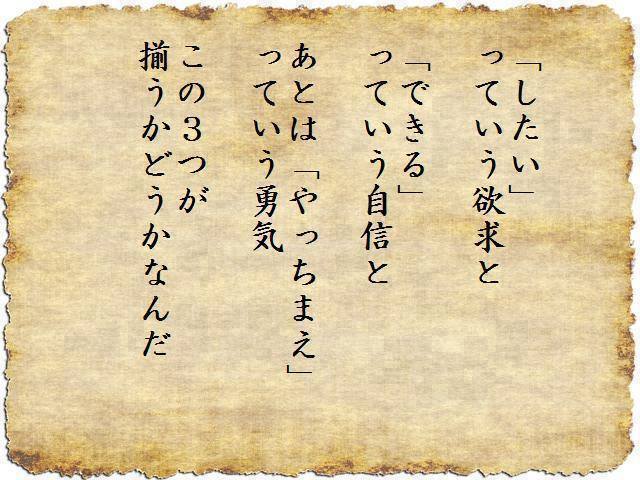 「したい」
っていう欲求と
「できる」
っていう自信と
あとは「やっちまえ」
っていう勇気
この３つが
揃うかどうかなんだ